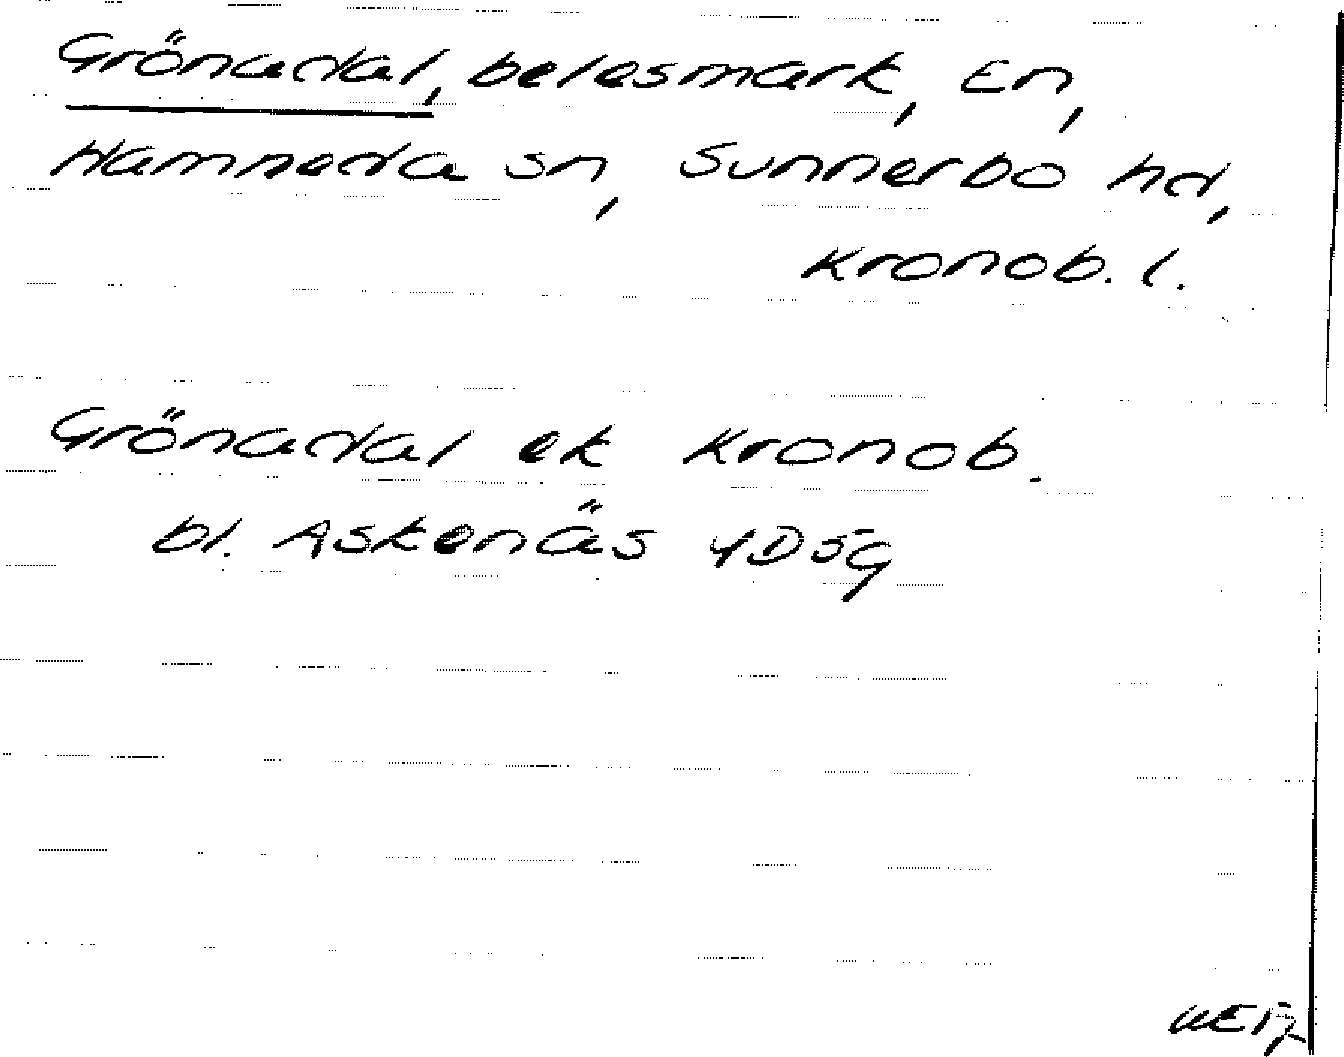 Grönadal, belesmark, En,
Hamneda sn, Sunnerbo hd,
Kronob. l.
Grönadal ek Kronob.
bl. Askenäs 4D5g